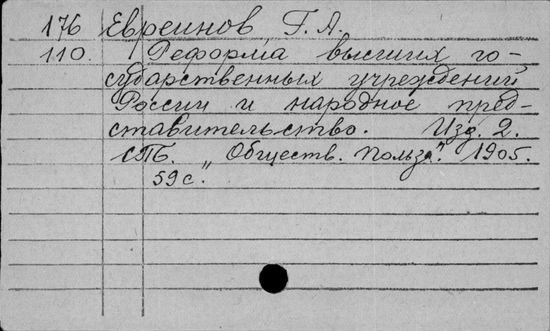 176 Евреинов Г. А.
110. Реформа высших го-
сударственных учреждений
России и народное пред-
ставительство. Изд. 2.
СПБ. „Обществ. Польза". 1905.
59 с.